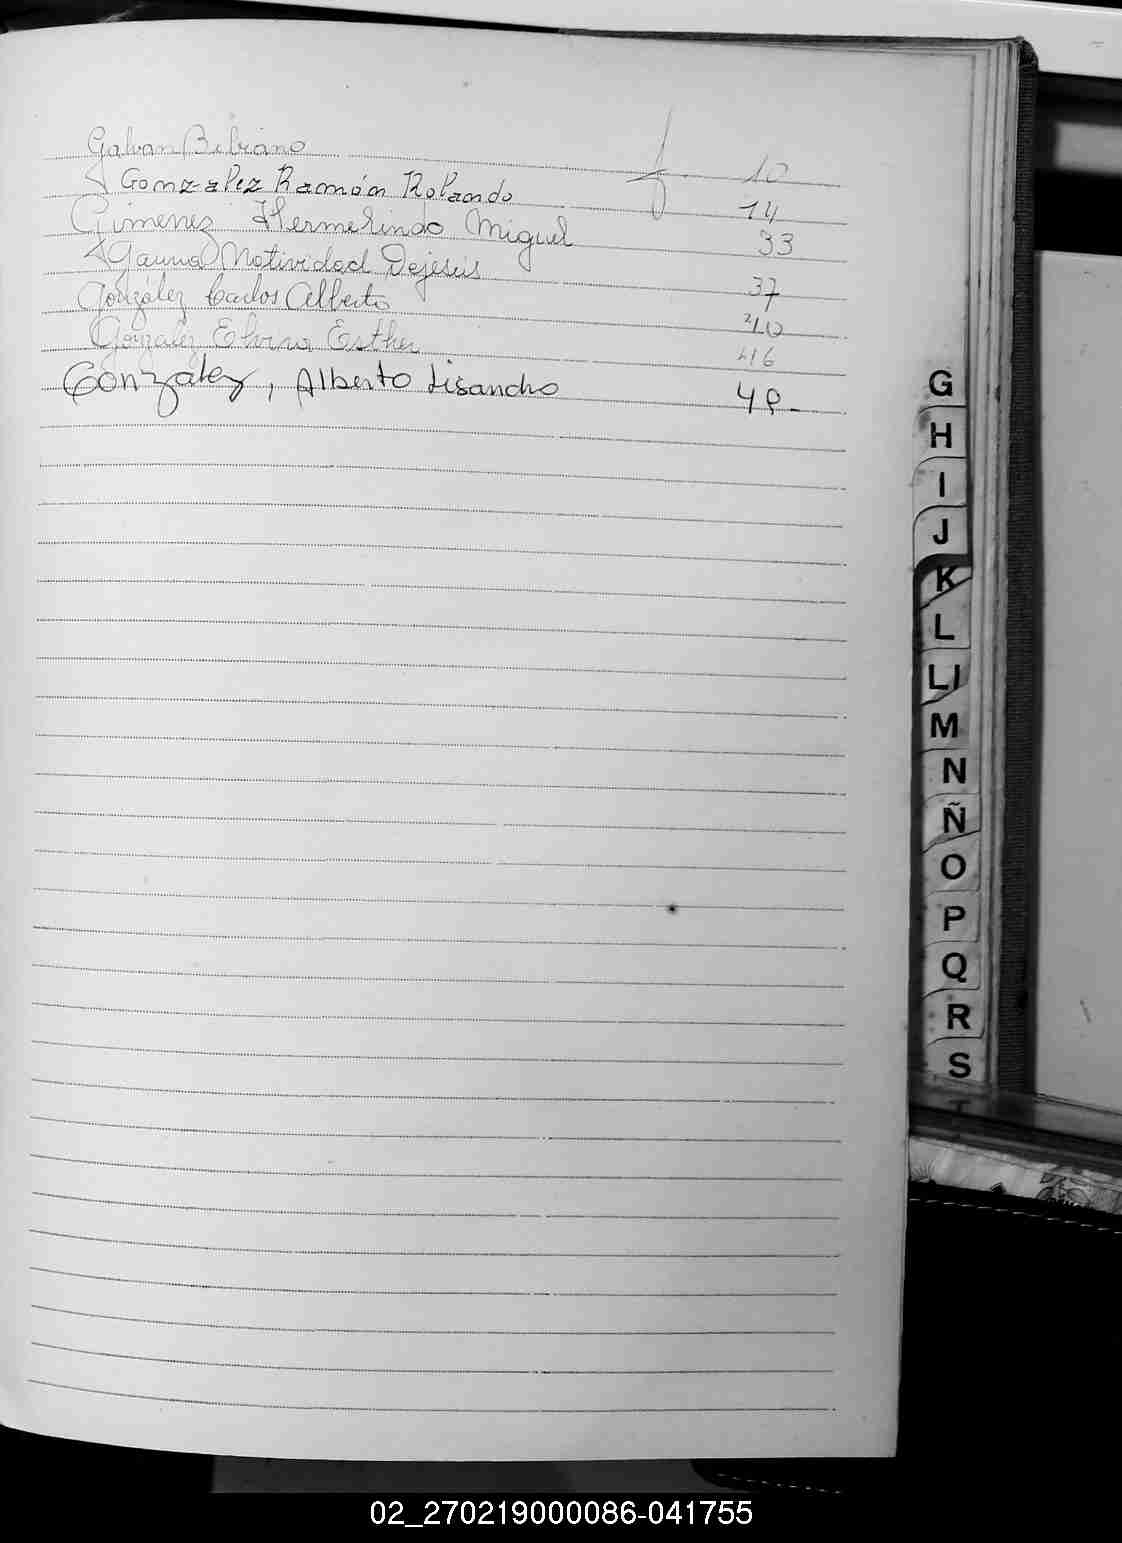 Galvan Bibiano 10
Gonzalez Ramón Rolando 14
Gimenez Hermelindo Miguel 33
Gauna Natividad Dejesús 37
González Carlos Alberto 40
Gonzalez Elvira Esther 46
González, Alberto Lisandro 48-
G
H
I
J
K
L
Ll
M
N
Ñ
O
P
Q
R
S
T
02_270219000086-041755